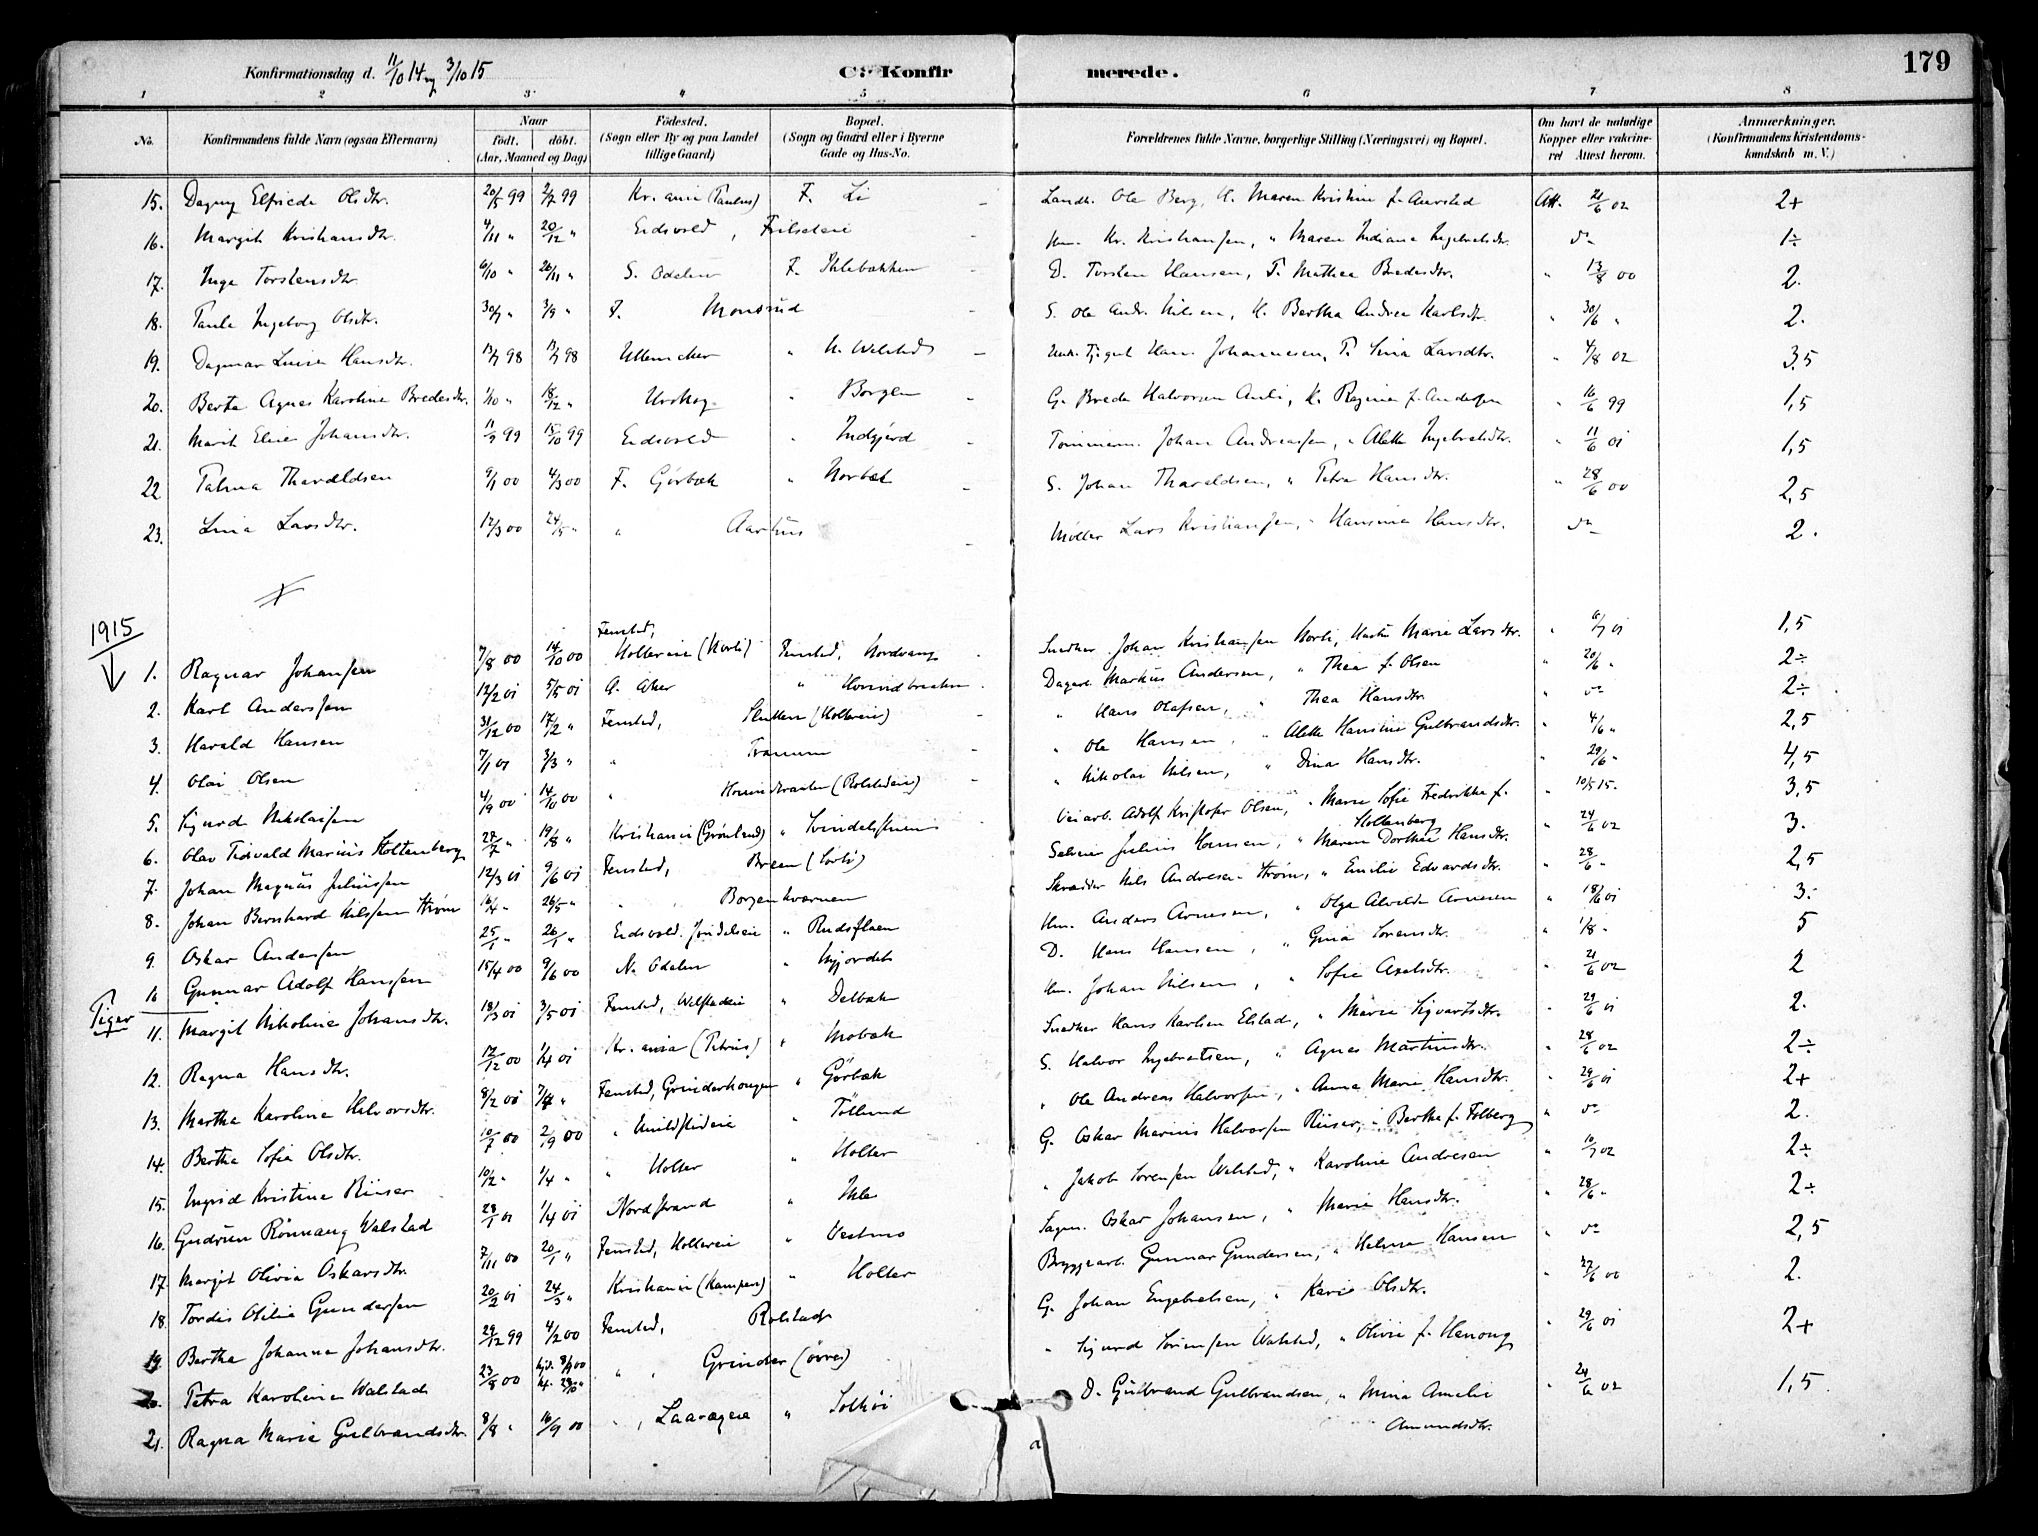 Konfirmationsdag d. 11/10 14 og 3/10 15 C: Konfirmerede. 179
1 2 3 4 5 6 7 8
No. Konfirmandens fulde Navn (ogsaa Efternavn) Naar født. døbt. (Aar, Maaned og Dag) Fødested. (Sogn eller By og paa Landet tillige Gaard) Bopæl. (Sogn og Gaard eller i Byerne Gade og Hus-No. Forældrenes fulde Navne, borgerlige Stilling (Næringsvei) og Bopæl. Om havt de naturlige Kopper eller vakcineret Attest herom. Anmærkninger. (Konfirmandens Kristendomskundskab m. V.)
15. Dagny Elfriede Olsdtr. 20/5 99 2/7 99 Kr.ania (Paulus) F. Li Landh. Ole Berg, H. Maren Kristine f. Aurstad Att. 21/6 02 2+
16. Margit Kristiansdtr. 4/11 " 20/12 " Eidsvold, Kr. Kristiansen, " Maren Indiana Ingebretsdtr. do 1÷
17. Inga Torstensdtr. 6/10 " 26/11 " S. Odalen F. Ihlebakken D. Torsten Hansen, F. Mathea Bredesdtr. " 13/8 00 2.
18. Paula Ingeborg Olsdtr. 30/7 " 3/9 " F. Monsrud S. Ole Andr. Nilsen, H. Bertha Andrea Karlsdtr. " 30/6 " 2.
19. Dagmar Luisa Hansdtr. 13/7 98 98 Ullensaker " N. Wilstad Hans Johannesen, F. Lina Larsdtr. " 4/8 02 3,5
20. Berta Agnes Karoline Bredesdtr. 1/10 " 18/12 " Urskog " Borgen G. Breda Halvorsen Auli, H. Regina f. Andersen " 16/6 99 1,5
21. Marit Eline Johansdtr. 11/9 99 15/10 99 Eidsvold " Indgjerd Tømmerm. Johan Andreassen, " Alette Ingebretsdtr. " 11/6 01 1,5
22 Palma Tharaldsen 9/1 00 4/3 00 F. Gørbæk " Norbæk S. Johan Tharaldsen, " Petra Hansdtr. " 28/6 00 2,5
23. Lina Larsdtr. 12/3 00 24/5 " " Aarhus Møller Lars Kristiansen, " Hansine Hansdtr. do 2.
1915
1. Ragnar Johansen 7/8 00 14/10 00 Fensted, Hollereie (Norli) Fensted, Nordvang Snedker Johan Kristiansen Norli, Hustru Marie Larsdtr. 1,5
2. Karl Anderssen 12/2 01 5/5 01 A. Aker " Dagarb. Markus Andersen, " Thea f. Olsen " 20/6 " 2÷
3. Harald Hansen 31/12 00 17/2 " Fensted, (Hollereie) " Hans Olafsen, " Thea Hansdtr. " do 2÷
4. Olai Olsen 7/1 01 3/3 " " Tranum " Ole Hansen, " Alette Hansine Gulbrandsdtr. " 4/6 " 2,5
5. Sigurd Nikolaisen 4/9 00 14/10 00 " (Rolstadeie) " Nikolai Nilsen, " Dina Hansdtr. " 29/6 " 4,5
6. Olav Tidvald Marius Holtenberg 28/7 " 19/8 " Kristiania (Grønland) " Veiarb. Adolf Kristofer Olsen, " Marie Sofie Fredrikke f. Holtenberg " 10/5 15. 3,5
7. Johan Magnus Juliussen 12/3 01 9/6 01 Fensted, Breen Selveier Julius Hansen, " Maren Dorthea Hansdtr. " 24/6 02 3.
8. Johan Bernhard Nilssen Strøm 16/4 " 26/5 " " Borgenkværnen Skrædder Nils Andresen Strøm, " Emilie Edvardsdtr. " 28/6 " 2,5
9. Oskar Andersen 25/1 " 26/1 " Eidsvold. " Rudsflaen Hm. Anders Arnesen, " Olga Alvilde Arnesen " 18/6 01 3÷
10 Gunnar Adolf Hanssen 15/4 00 9/6 00 N. Odalen " D. Hans Hansen, " Gina Sorensdtr. " 1/8 " 5
Piger
11. Margit Nikoline Johansdtr. 18/3 01 3/5 01 Fensted, Welstadeie " Delbæk Hm. Johan Nilsen, " Sofie Axelsdtr. " 21/6 02 2
12. Ragna Hansdtr. 12/12 00 1/4 01 Kr.ania (Petrus) " Mobæk Snedker Hans Karlsen Elstad, " Marie Sigvartsdtr. " 29/6 01 2.
13. Martha Karoline Halvorsdtr. 8/2 01 7/4 " Fensted, Grinderhaugen " Gørbæk S. Halvor Ingebretsen, " Agnes Martinsdtr. " 28/6 02 2÷
14. Bertha Sofie Olsdtr. 10/7 00 2/9 00 " " Tølland " Ole Andreas Halvorsen, " Anna Marie Hansdtr. " 29/6 01 2+
15. Ingrid Kristine Riiser 10/2 " 1/4 " " Holter " Holter G. Oskar Marius Halvorsen Riiser, " Bertha f. Folberg " do 2.
16. Gudrun Rønnaug Walstad 28/1 01 1/4 01 Nordstrand " Ihle " Jakob Sorensen Walstad, " Karoline Andresen " 10/7 02 2÷
17. Margit Olivia Oskarsdtr. 7/11 00 20/1 " Fensted, Hollereie " Vestmo Sagm. Oskar Johansen, " Marie Hansdtr. " 28/6 " 2÷
18. Tordis Otilie Gundersen 20/2 01 24/5 " Kristiania (Kampen) " Holter Bryggearb. Gunnar Gundersen, " Helma Hansen " do 2,5
19. Bertha Johanna Johansdtr. 29/12 99 4/2 00 Fensted, Rolstad G. Johan Engebretsen, " Karie Olsdtr. " 27/6 00 2.
20. Petra Karoline Walstad 23/8 00 hjd. 8/9 00 k. 28/10 " " , Grinder (øvre) " Sigurd Sørensen Walstad, " Olivia f. Henong " 29/6 01 2+
21. Ragna Marie Gulbrandsdtr. 8/8 " 16/9 00 " , Laarageie " Solhøi D. Gulbrand Gulbrandsen, " Mina Amalie Amundsdtr. " 24/6 02 1,5.